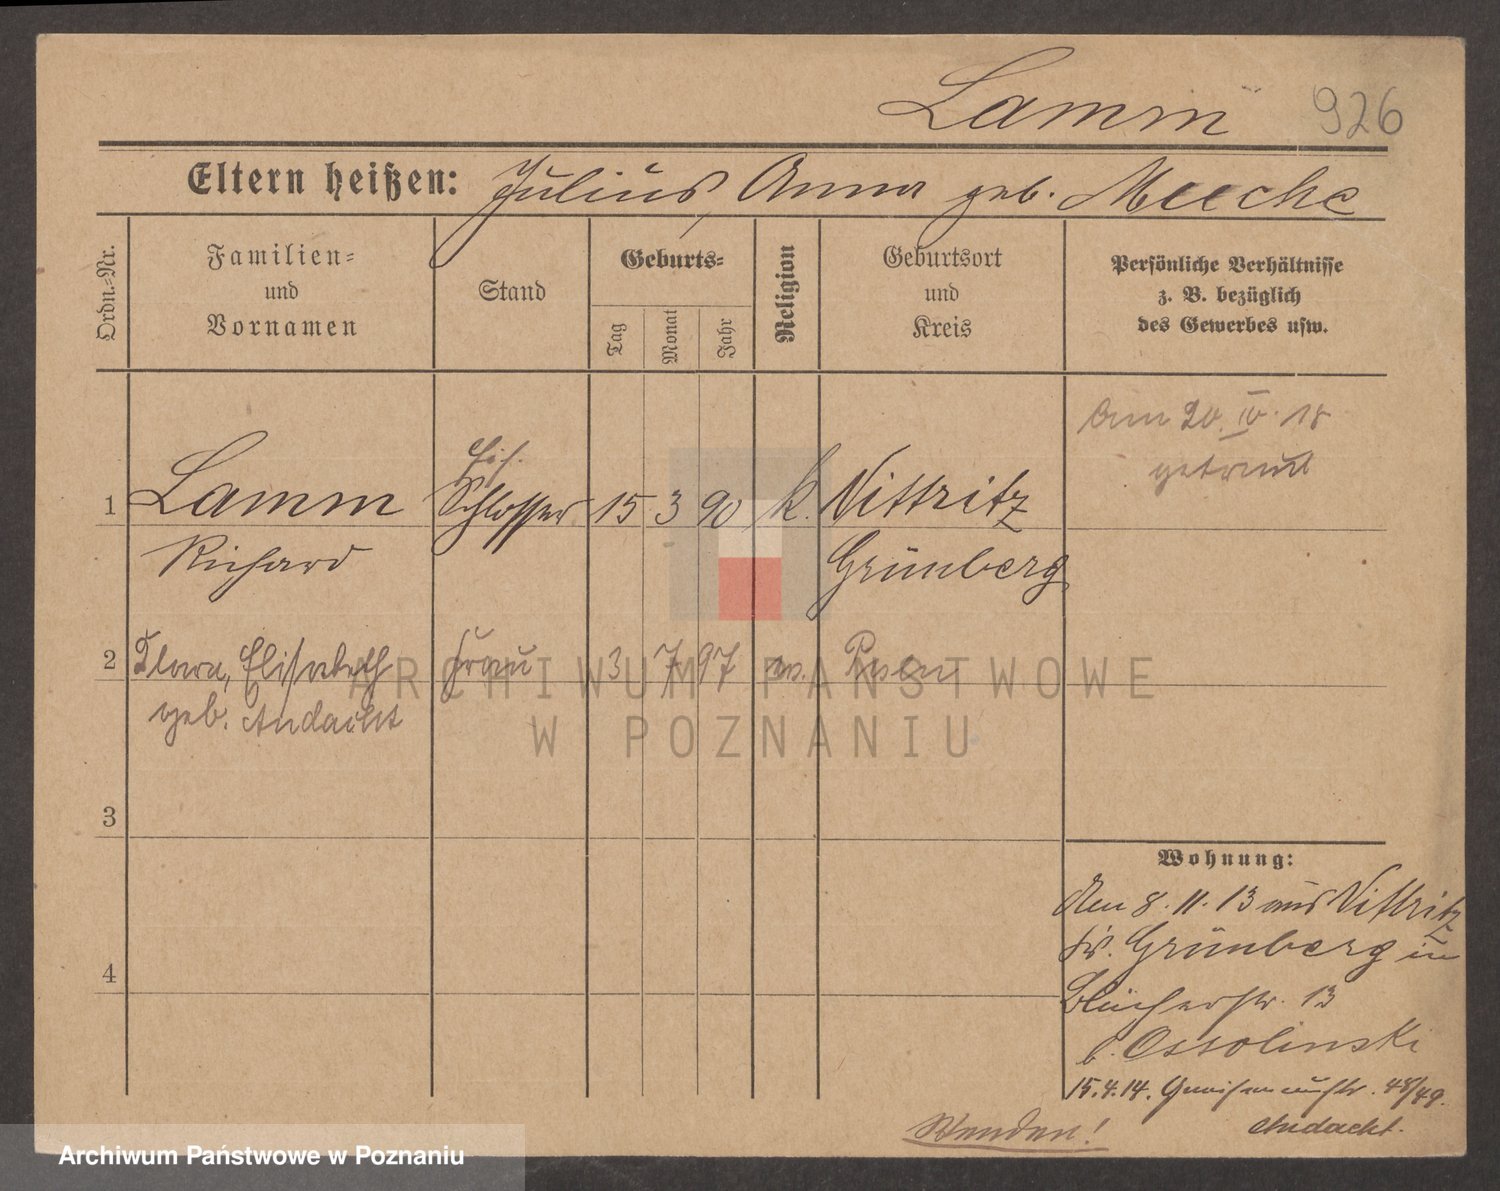 Lamm 926
Eltern heißen: Julius, Anna geb. Meeche
Ordn.-Nr.
Familien-
und
Vornamen
Stand
Geburts-
Tag
Monat
Jahr
Religion
Geburtsort
und
Kreis
Persönliche Verhältnisse
z. B. bezüglich
des Gewerbes usw.
Am 20. IV. 18
getraut
1 Lamm Schlosser 15 3 90 k. Nittritz
Richard Grünberg
2 Klara, Elisabeth Frau 3 7 97 ev. Posen
geb. Andacht
3
4
Wohnung:
Am 8. 11. 13 aus Nittritz
Kr. Grünberg in
Blücherstr. 13
b. Ossolinski
15.4.14. Gneisenaustr. 48/49.
Andacht.
Wenden!
ARCHIWUM PAŃSTWOWE
W POZNANIU
Archiwum Państwowe w Poznaniu